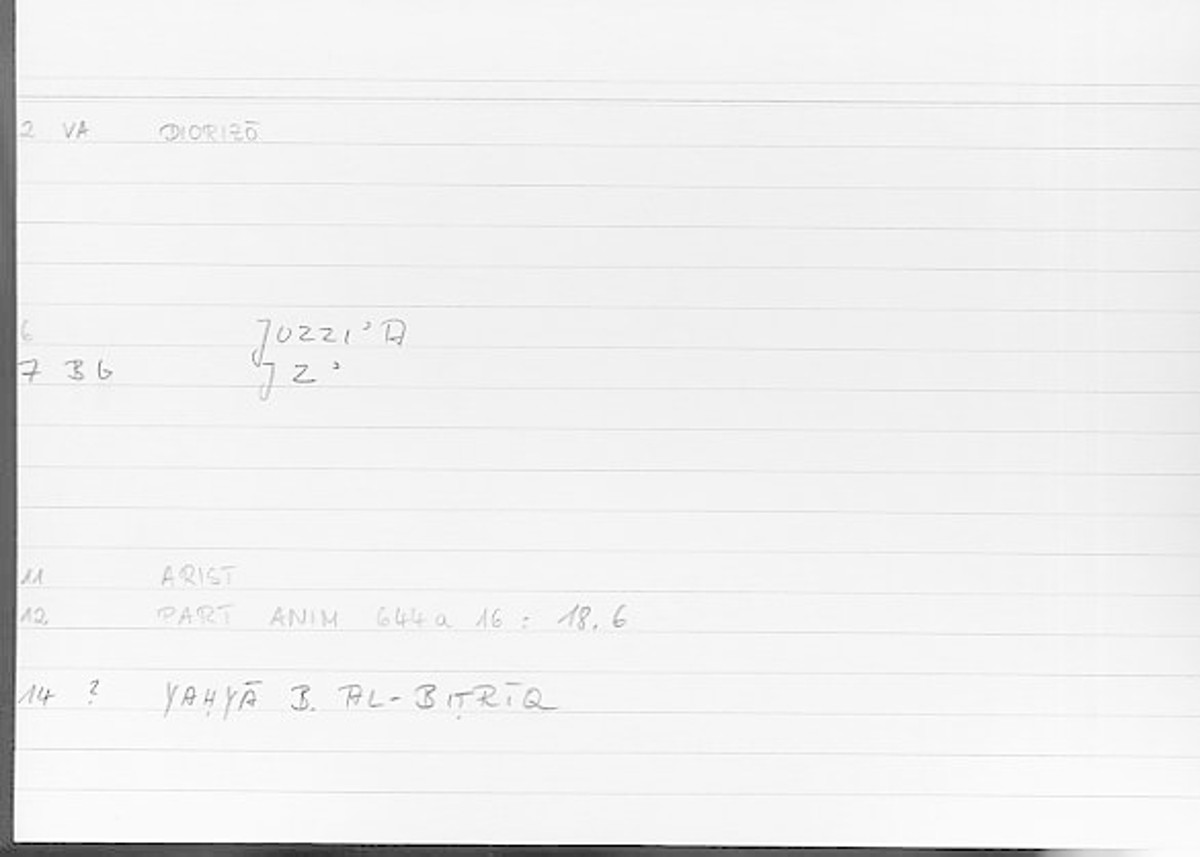 2 VA DIORIZŌ
6 JUZZI'A
7 B6 JZ'
11 ARIST
12 PART ANIM 644a 16 : 18.6
14 ? YAḤYĀ B. AL-BIṬRĪQ